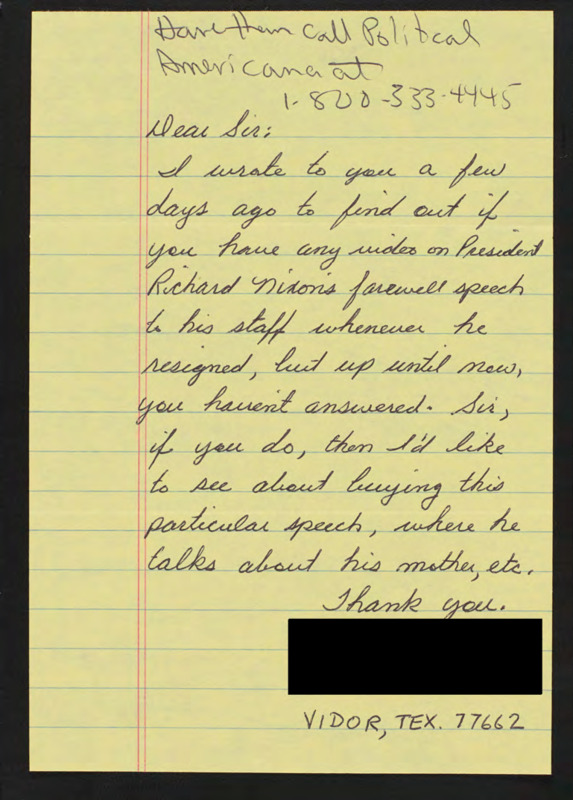 Have them call Political
Americana at
1-800-333-4445
Dear Sir:
I wrote to you a few
days ago to find out if
you have any video on President
Richard Nixon's farewell speech
to his staff whenever he
resigned, but up until now,
you haven't answered. Sir,
if you do, then I'd like
to see about buying this
particular speech, where he
talks about his mother, etc.
Thank you.
VIDOR, TEX. 77662